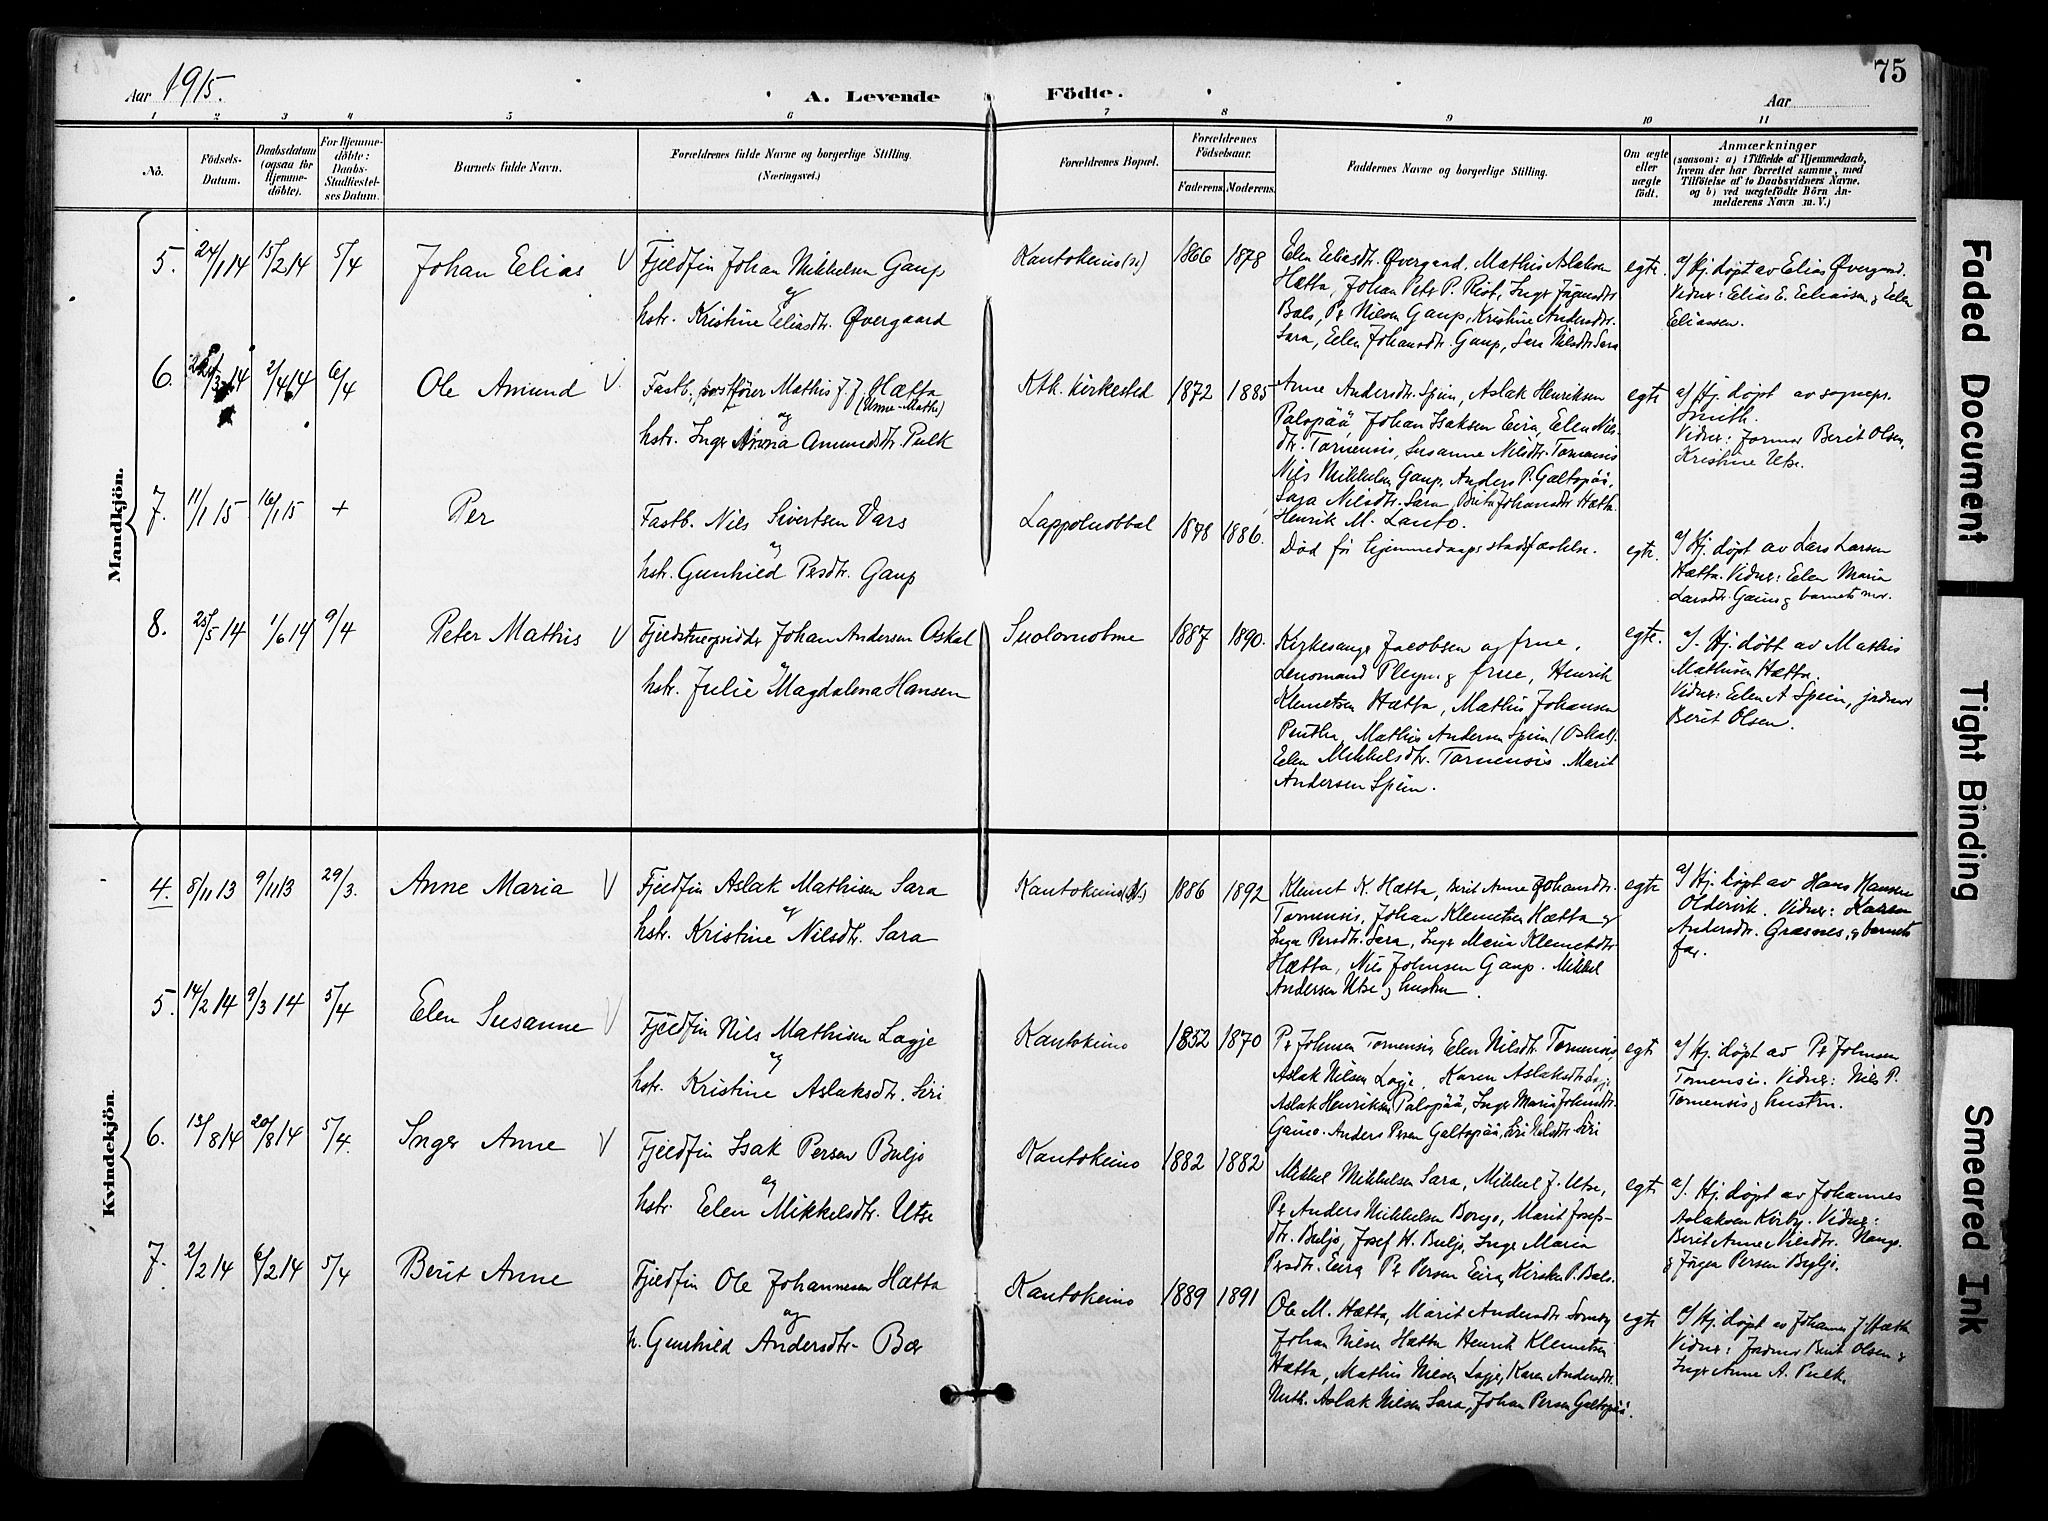 75
Aar 1915.
A. Levende Födte.
Aar
1 2 3 4 5 6 7 8 9 10 11
No.
Födsels-
Datum.
Daabsdatum
(ogsaa for
Hjemme-
döbte).
For Hjemme-
döbte:
Daabs-
Stadfæstel-
ses Datum.
Barnets fulde Navn.
Forældrenes fulde Navne og borgerlige Stilling.
(Næringsvei.)
Forældrenes Bopæl.
Forældrenes
Födselsaar.
Faderens. Moderens.
Faddernes Navne og borgerlige Stilling.
Om ægte
eller
uægte
født.
Anmærkninger
(saasom: a) i Tilfælde af Hjemmedaab,
hvem der har forrettet samme, med
Tilföielse af to Daabsvidners Navne,
og b) ved uægtefödte Börn An-
melderens Navn m. V.)
Mandkjön.
5. 24/1 14 15/2 14 5/4 Johan Elias V
Fjeldfin Johan Mikkelsen Gaup
og
hstr. Kristine Eliasdtr. Øvergaard
Kautokeino 1866 1878
Elen Eliasdtr. Øvergaard, Mathis Aslaksen
Hætta, Johan Peter P. Rist, Inger Jögensdtr
Bals, Pr Nilsen Gaup, Kristine Andersdtr.
Sara, Elen Johansdtr. Gaup, Sara Nilsdtr Sara
egte.
a/ Hj. døpt av Elias Øvergaard.
Vidner: Elias E. Eliasen & Elen
Eliassen.
6. 2/4 14 6/4 Ole Amund V.
Fastb. postfører Mathis J. J. Hætta
og
hstr. Inger Anna Amundsdtr Pulk
Ktk. kirkested 1872 1885
Anne Andersdtr. Spein, Aslak Henriksen
Palopää Johan Isaksen Eira, Elen Nils-
dtr. Tornensis, Susanne Nilsdtr. Tornensis
Nils Mikkelsen Gaup, Anders P. Galtopää,
Sara Nilsdtr. Sara, Berit Johansdtr Hætta.
Henrik M. Lanto.
egte
a/ Hj. døpt av sognepr.
Smith.
Vidner: Jormor Berit Olsen,
Kristine Utse.
7. 11/1 15 16/1 15 + Per
Fastb. Nils Sivertsen Vars
og
hstr. Gunhild Persdtr. Gaup
Lappoluobbal 1878 1886.
Död før hjemmedaapsstadfæstelse.
egte.
a/ Hj. døpt av Lars Larsen
Hætta. Vidner: Elen Maria
Larsdtr. Gaino & barnets mor.
8. 25/5 14 1/6 14 9/4 Peter Mathis V
Fjeldstueopsidder Johan Andersen Oskal
og
hstr. Julie Magdalena Hansen
Suolovuobme 1887 1890.
Kirkesanger Jacobsen og frue,
Lensmand Pleym & frue, Henrik
Klemetsen Hætta, Mathis Johansen
Pentha, Mathis Andersen Spein (Oskal).
Elen Mikkelsdtr. Tornensis. Marit
Andersen Spein.
egte.
a/. Hj. døbt av Mathis
Mathisen Hætta.
Vidner: Elen A Spein, jordmor
Berit Olsen.
Kvindekjön.
4. 8/11 13 9/11 13 29/3. Anne Maria V
Fjeldfin Aslak Mathisen Sara
og
hstr. Kristine Nilsdtr. Sara
Kautokeino 1886 1892
Klemet K. Hætta, Berit Anne Johansdtr.
Tornensis, Johan Klemetsen Hætta &
Inga Persdtr. Sara, Inger Maria Klemetsdtr
Hætta, Nils Johnsen Gaup. Mikkel
Andersen Utse & hustru.
egte
a/ Hj. døpt av Hans Hansen
Oldervik. Vidner: Karen
Andersdtr. Grasnes, & barnets
far.
5. 14/2 14 9/3 14 5/4 Elen Susanne V
Fjeldfin Nils Mathisen Logje
og
hstr. Kristine Aslaksdtr. Siri
Kautokeino 1852 1870
Pr Johnsen Tornensis, Elen Nilsdtr. Tornensis
Aslak Nilsen Logje, Karen Aslaksdtr. Logje
Aslak Henriksen Palopää, Inger Maria Johnsdtr.
Gaino. Anders Persen Galtopää, Siri Nilsdtr. Siri
egte
a/ Hj. døpt av Pr Johnsen
Tornensis. Vidner: Nils P.
Tornensis & hustru.
6. 13/8 14 20/8 14 5/4. Inger Anne V
Fjeldfin Isak Persen Buljo
og
hstr. Elen Mikkelsdtr. Utse
Kautokeino 1882 1882
Mikkel Mikkelsen Sara, Mikkel J. Utse,
Pr Anders Mikkelsen Bongo, Marit Josefs-
dtr. Buljo, Josef H. Buljo, Inger Maria
Persdtr. Eira, Pr Persen Eira, Kirsten P. Bals.
egte
a/. Hj. døpt av Johannes
Aslaksen Kirby. Vidner:
Berit Anne Nilsdtr.
& Jörgen Persen Bigljo.
7. 2/2 14 6/2 14 5/4 Berit Anne
Fjeldfin Ole Johannesen Hætta
og
h. Gunhild Andersdtr. Bær
Kautokeino 1889 1891
Ole M. Hætta, Marit Andersdtr Somby
Johan Nilsen Hætta Henrik Klemetsen
Hætta, Mathis Nilsen Logje, Karen Andersdtr.
Aslak Nilsen Sara, Johan Persen Galtopää.
egte
a/ Hj. døpt av Johannes J. Hætta
Vidner: Jordmor Berit Olsen &
Inger Anne A. Pulk.
Faded Document
Tight Binding
Smeared Ink